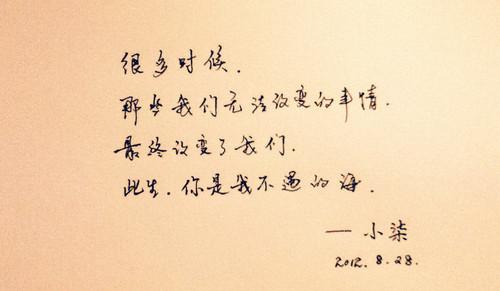 很多时候.
那些我们无法改变的事情.
最终改变了我们.
此生.你是我不遇的海.
— 小柒
2012.8.28.